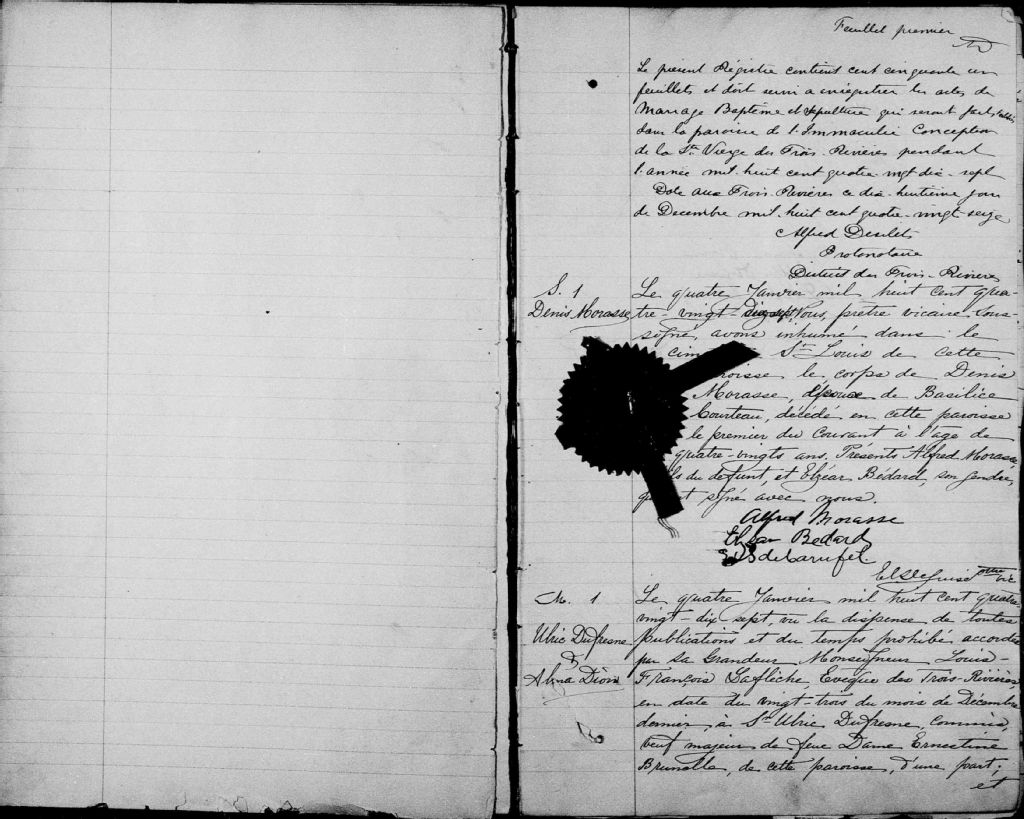 Feuillet premier
AD
Le présent Régistre contient cent cinquante un
feuillets et doit servir a enrégistrer les actes de
Mariage Baptême et Sépulture qui seront faits
dans la paroisse de l'Immaculée Conception
de la Ste Vierge des Trois-Rivières pendant
l'année mil-huit cent quatre-vingt dix-sept
Daté aux Trois-Rivières ce dix-huitième jour
de Decembre mil-huit cent quatre-vingt-seize
Alfred Desilets
Protonotaire
District des Trois-Rivières
S. 1
Denis Morasse
Le quatre Janvier mil huit cent qua-
tre-vingt-dix-sept, Nous, prêtre vicaire sous-
signé, avons inhumé dans le
cim St Louis de cette
roisse le corps de Denis
Morasse, époux de Basilice
Courteau, décédé en cette paroisse
le premier du courant à l'âge de
quatre-vingts ans. Présents Alfred Morasse,
ls du défunt, et Elzéar Bédard, son gendre,
q t signé avec nous.
Alfred Morasse
Elzear Bedard
De Guise ptre vic
M. 1
Ulric Dufresne
&
Alma Dion
Le quatre Janvier mil huit cent quatre-
vingt-dix sept, vu la dispense de toutes
publications et du temps prohibé accordée
par Sa Grandeur Monseigneur Louis-
François Laflèche, Evêque des Trois-Rivières,
en date du vingt-trois du mois de Décembre
dernier, à Sr Ulric Dufresne, commis,
veuf majeur de feue Dame Ernestine
Brunelle, de cette paroisse, d'une part;
et